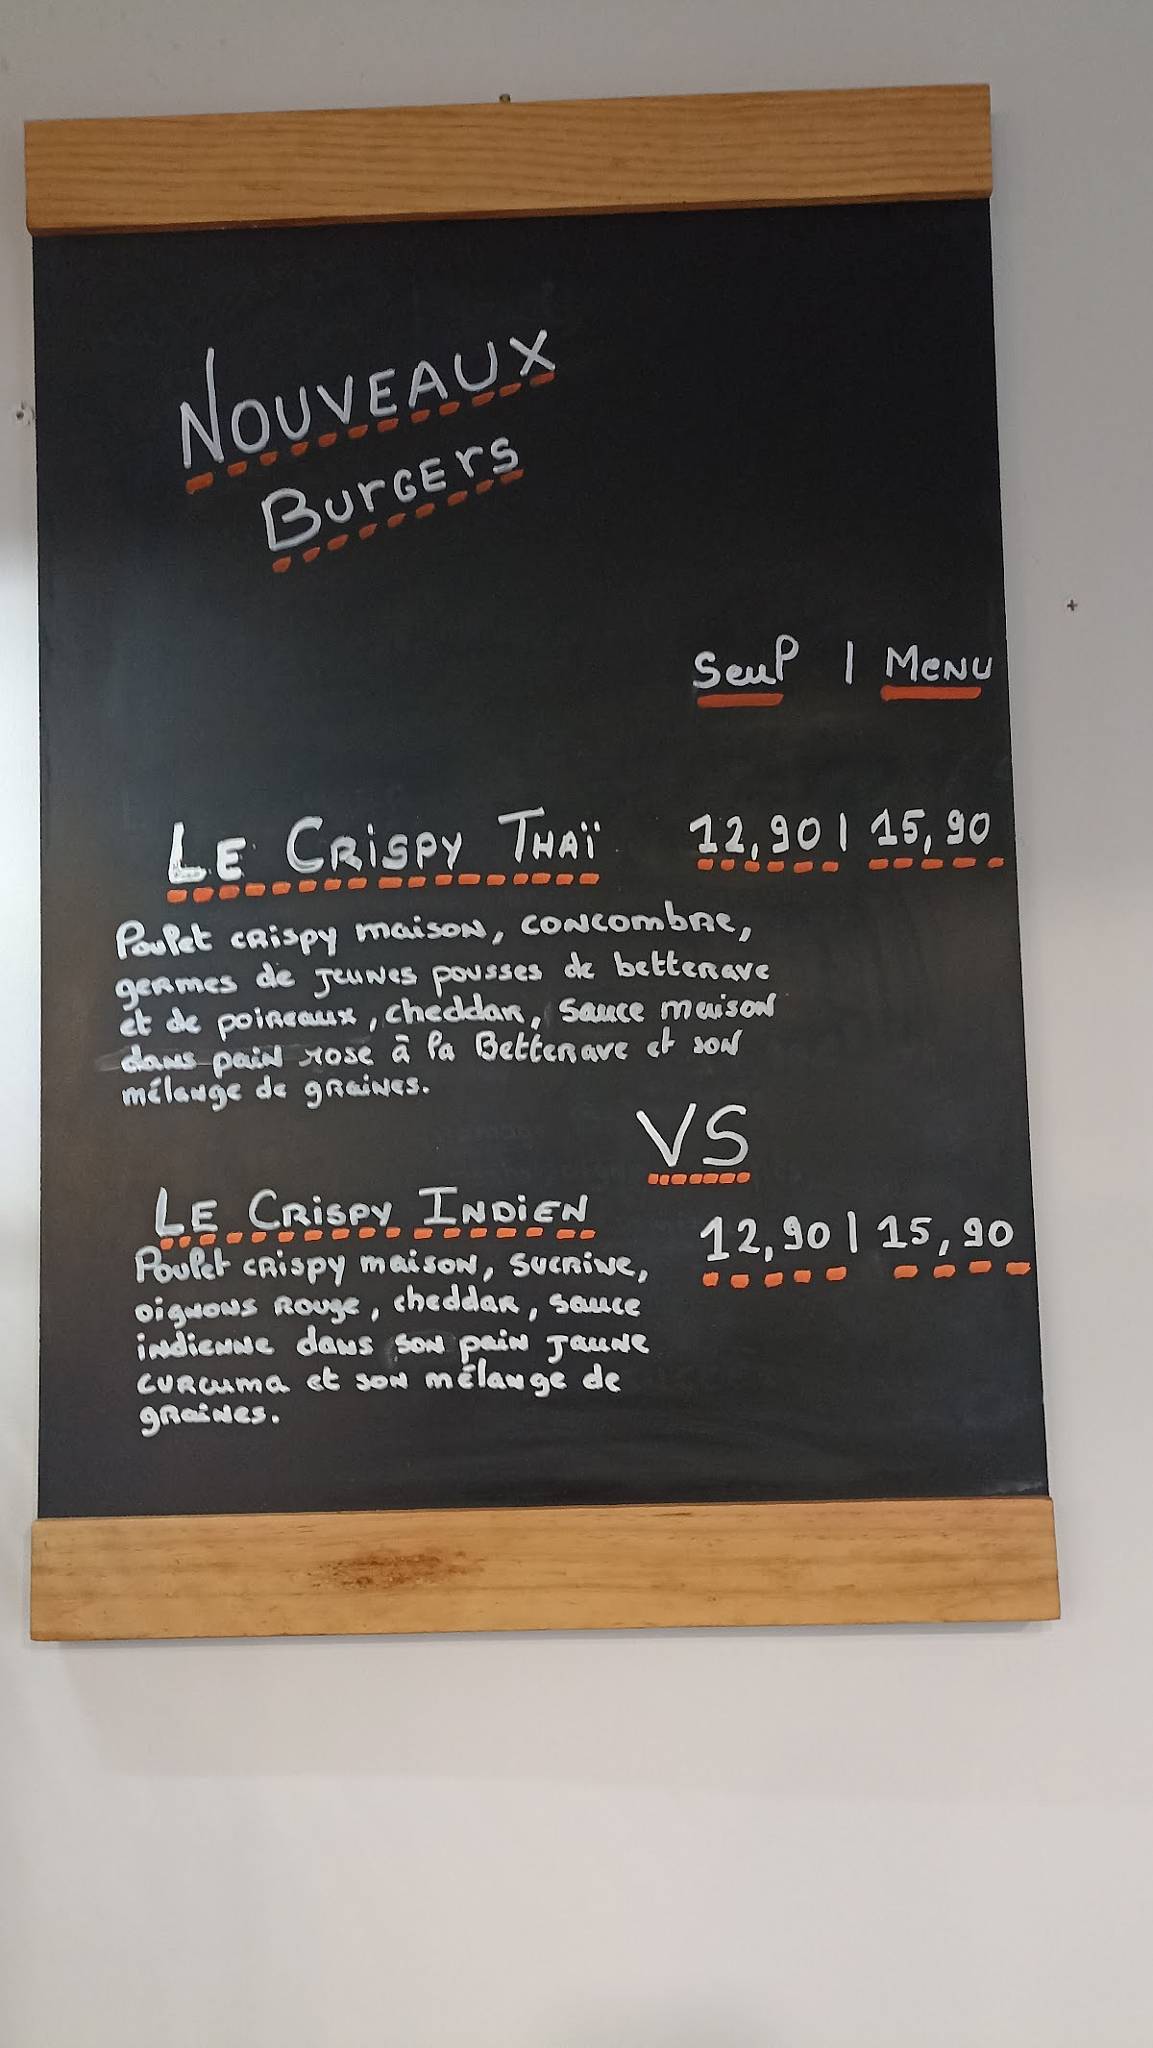 NOUVEAUX
BURGERS
Seul | MENU
LE CRISPY THAÏ 12,90 | 15,90
Poulet crispy maison, concombre,
germes de jeunes pousses de betterave
et de poireaux, cheddar, sauce maison
dans pain rose à la Betterave et son
mélange de graines.
VS
LE CRISPY INDIEN 12,90 | 15,90
Poulet crispy maison, sucrine,
oignons rouge, cheddar, sauce
indienne dans son pain jaune
curcuma et son mélange de
graines.